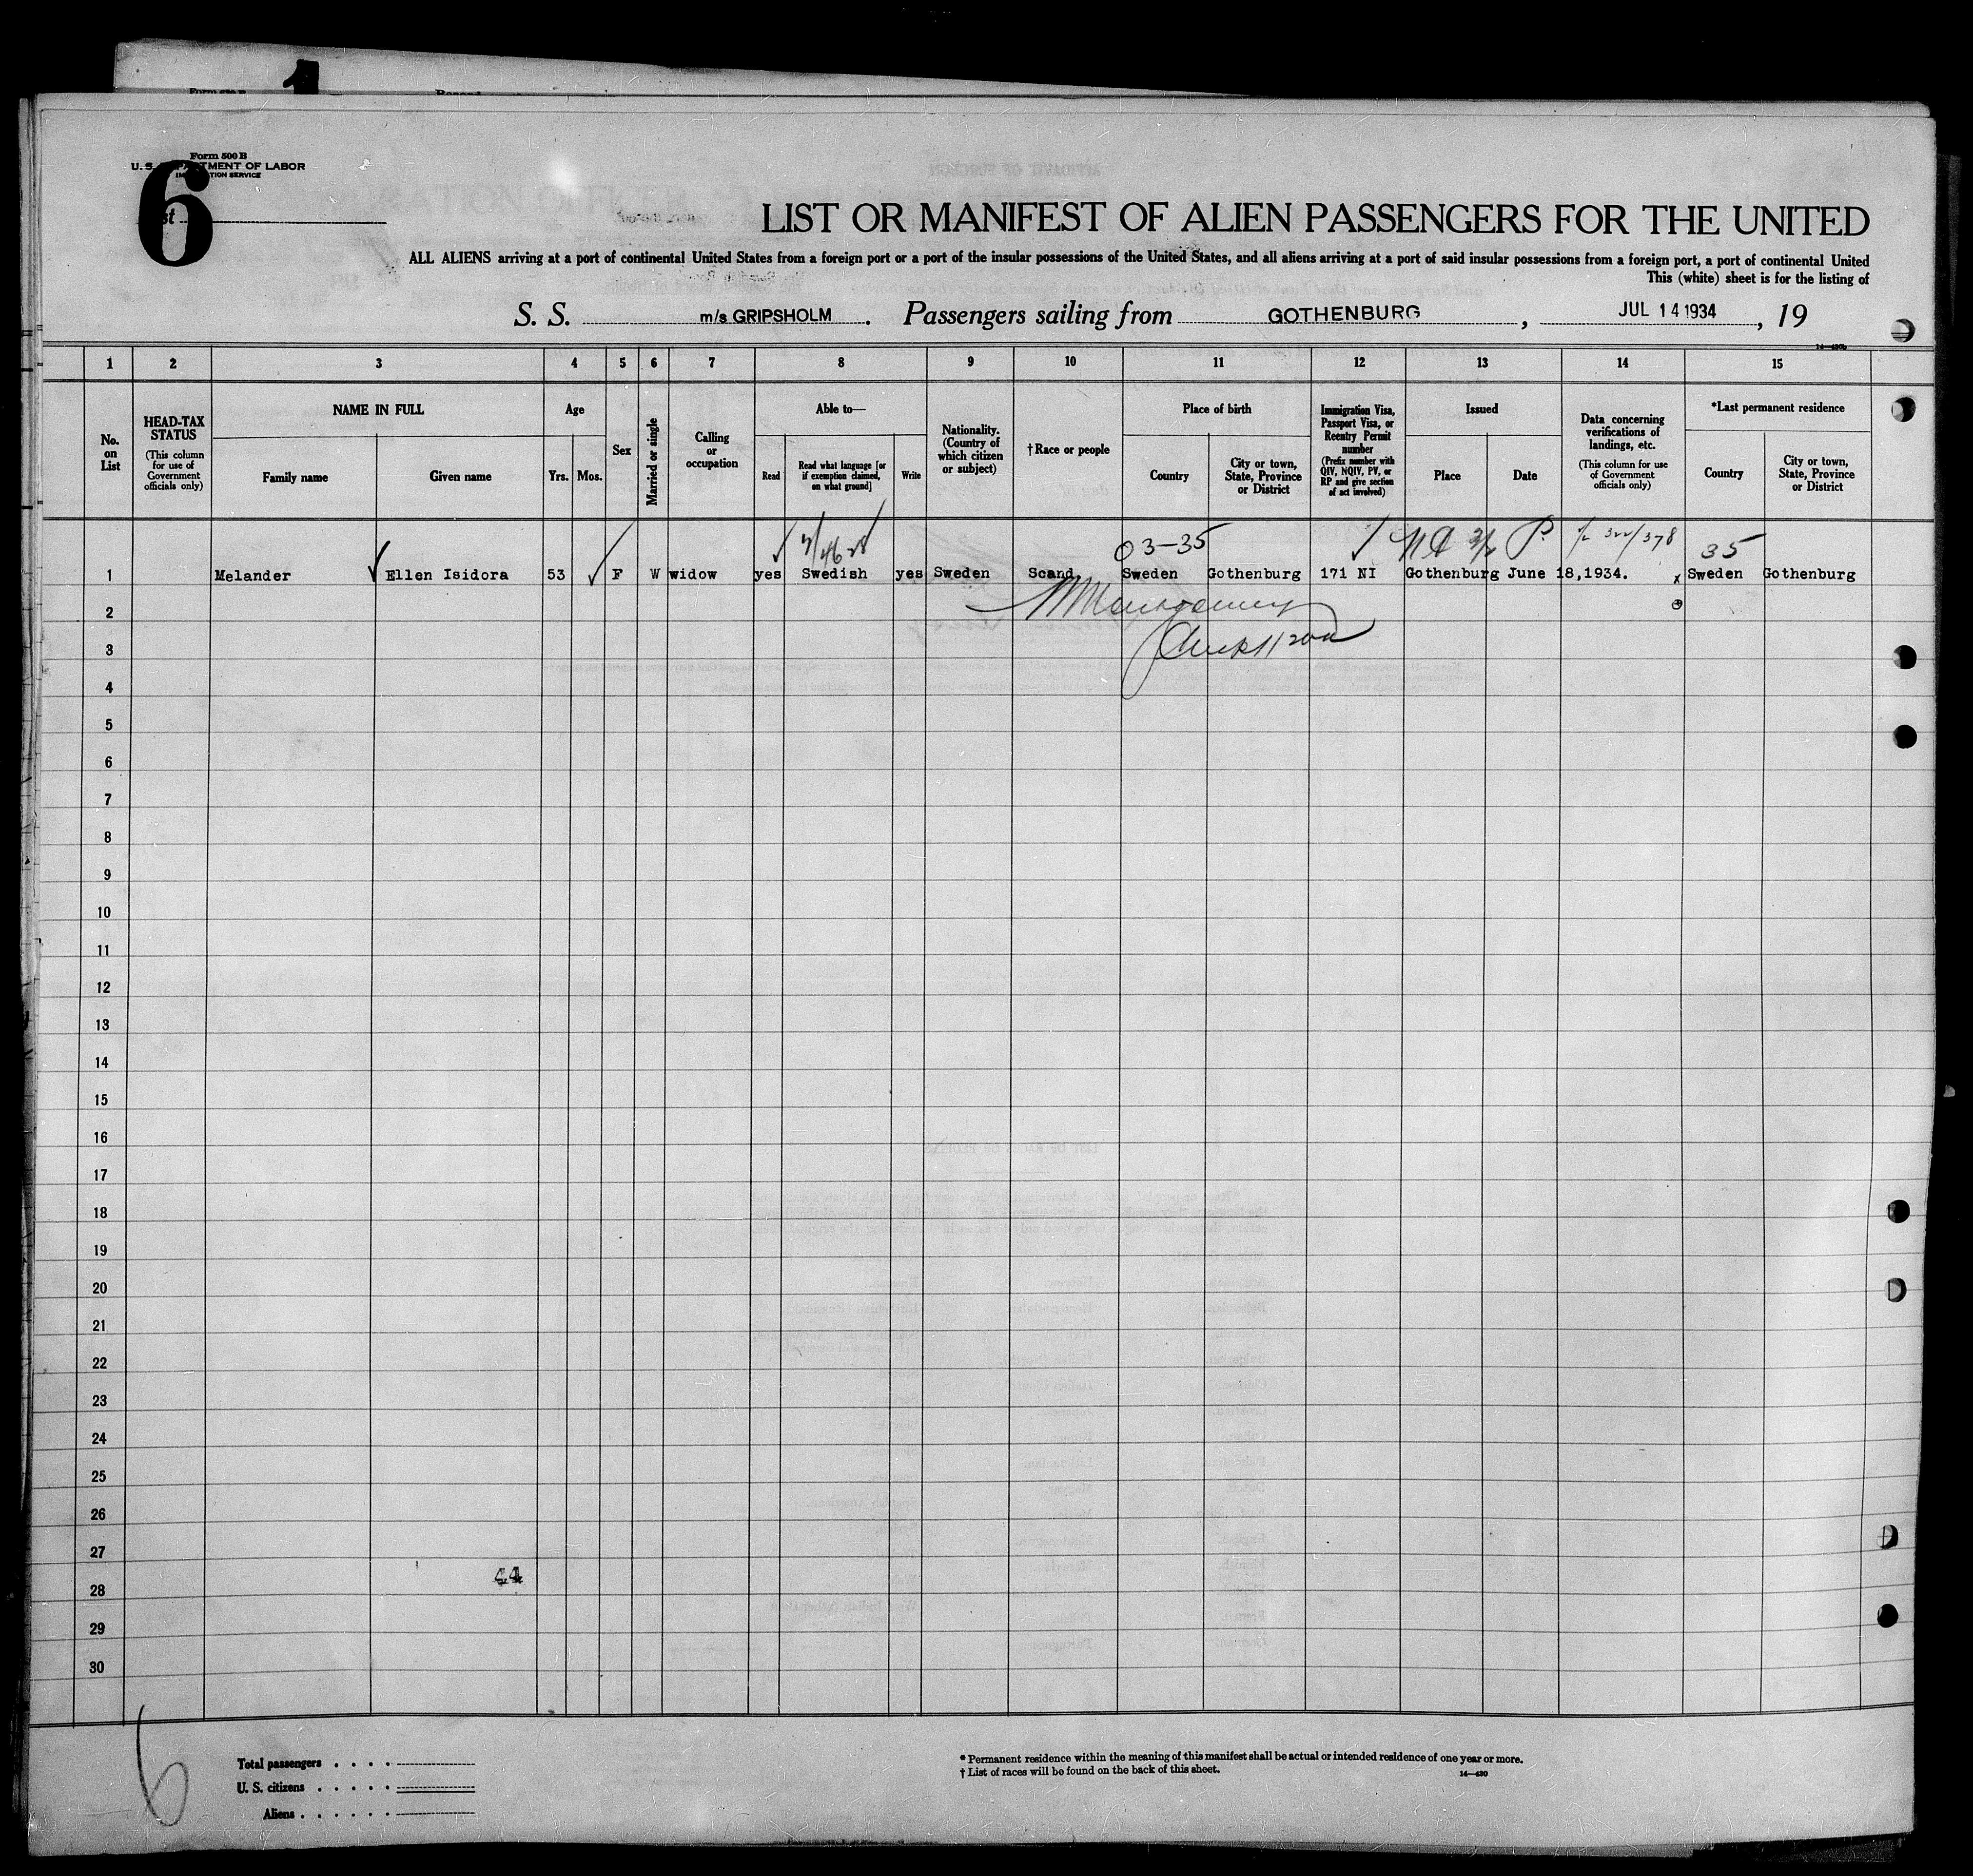 1
Form 500 B
U. S. DEPARTMENT OF LABOR
IMMIGRATION SERVICE
6
LIST OR MANIFEST OF ALIEN PASSENGERS FOR THE UNITED
ALL ALIENS arriving at a port of continental United States from a foreign port or a port of the insular possessions of the United States, and all aliens arriving at a port of said insular possessions from a foreign port, a port of continental United
This (white) sheet is for the listing of
S. S. m/s GRIPSHOLM. Passengers sailing from GOTHENBURG, JUL 14 1934, 19
1 2 3 4 5 6 7 8 9 10 11 12 13 14 15
No. on List
HEAD-TAX STATUS
(This column for use of Government officials only)
NAME IN FULL
Family name
Given name
Age
Yrs. Mos.
Sex
Married or single
Calling or occupation
Able to—
Read
Read what language [or if exemption claimed, on what ground]
Write
Nationality. (Country of which citizen or subject)
†Race or people
Place of birth
Country
City or town, State, Province or District
Immigration Visa, Passport Visa, or Reentry Permit number
(Prefix number with QIV, NQIV, PV, or RP and give section of act involved)
Issued
Place
Date
Data concerning verifications of landings, etc.
(This column for use of Government officials only)
*Last permanent residence
Country
City or town, State, Province or District
03-35 35
1 Melander Ellen Isidora 53 F W widow yes Swedish yes Sweden Scand. Sweden Gothenburg 171 NI Gothenburg June 18,1934. x Sweden Gothenburg
2
3
4
5
6
7
8
9
10
11
12
13
14
15
16
17
18
19
20
21
22
23
24
25
26
27
44
28
29
30
6
Total passengers
U. S. citizens
Aliens
* Permanent residence within the meaning of this manifest shall be actual or intended residence of one year or more.
† List of races will be found on the back of this sheet.
14—430